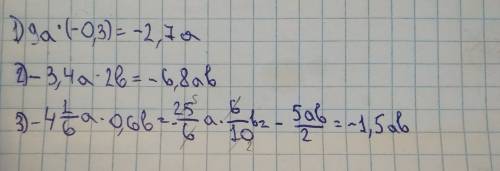 1) 9a·(-0,3)=-2,7a
2) -3,4a·2b=-6,8ab
3) -4 1/6 a·0,6b=-25/6 5 a·6/10 2 b=-5ab/2=-1,5ab